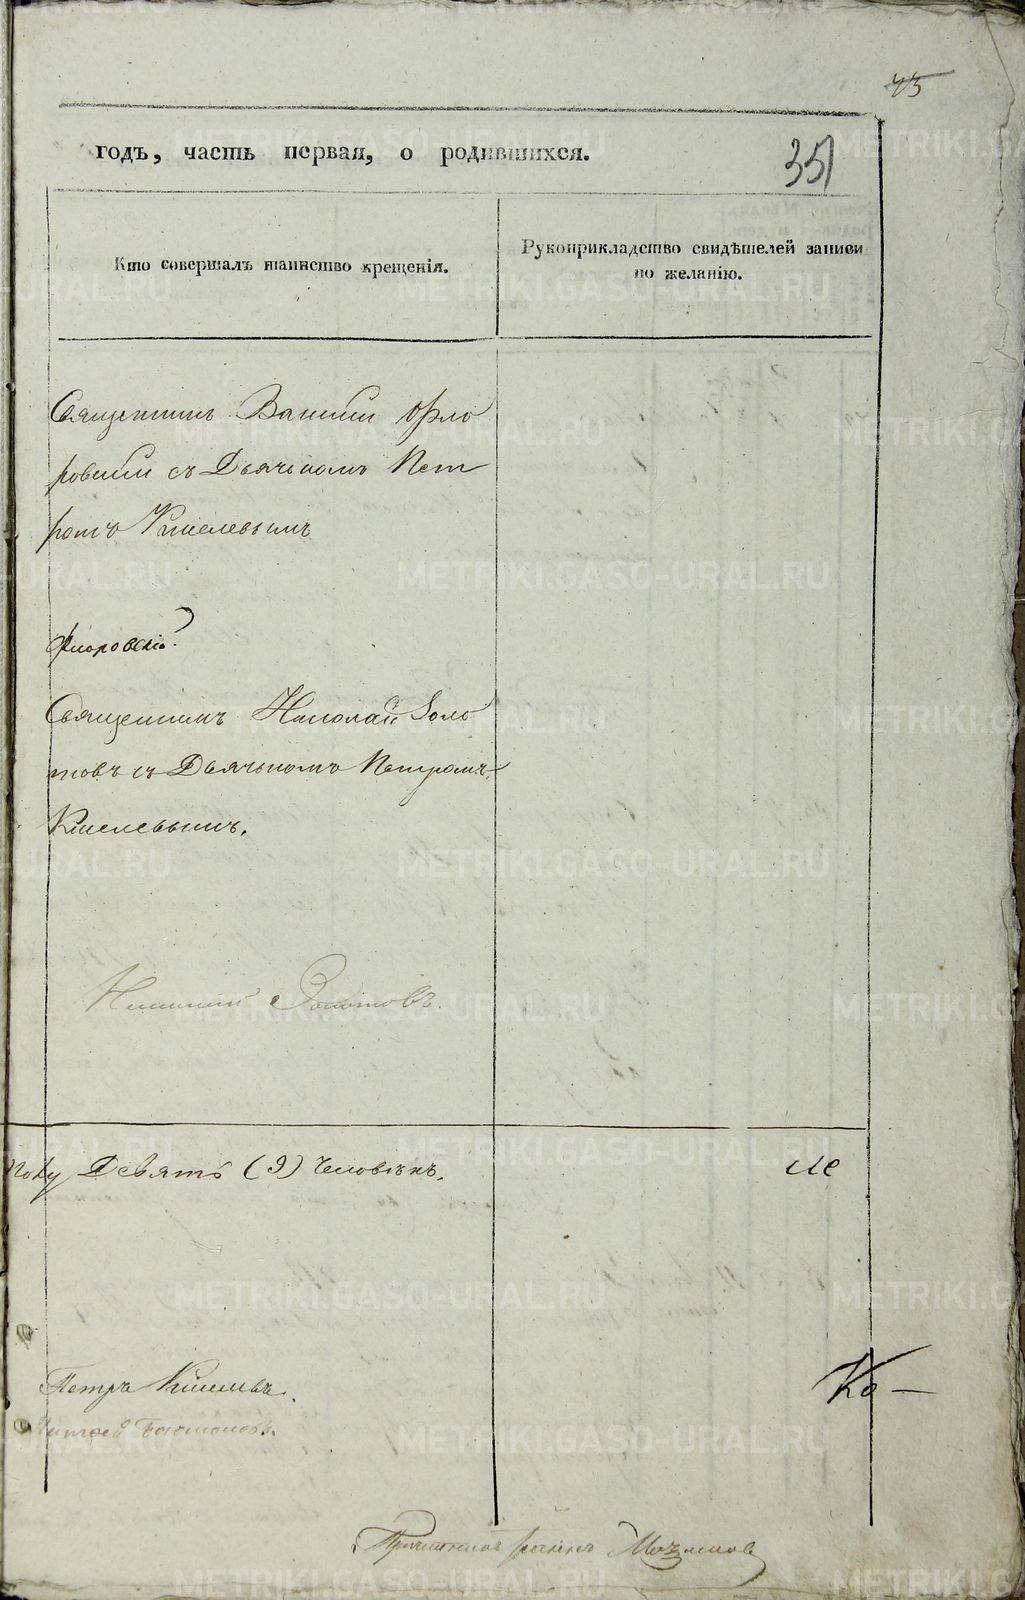 45
годъ, часть первая, о родившихся.
351
Кто совершалъ таинство крещенія.
Рукоприкладство свидѣтелей записи
по желанію.
Священникъ Василій Фло
ровскій съ Дьячкомъ Пет
ромъ Киселевымъ
Флоровскій.
Священникъ Николай Золо
товъ съ Дьячкомъ Петромъ
Киселевымъ.
Николай Золотовъ.
полу Девять (9) человѣкъ.
Петръ Киселевъ.
Ко —
METRIKI.GASO-URAL.RU